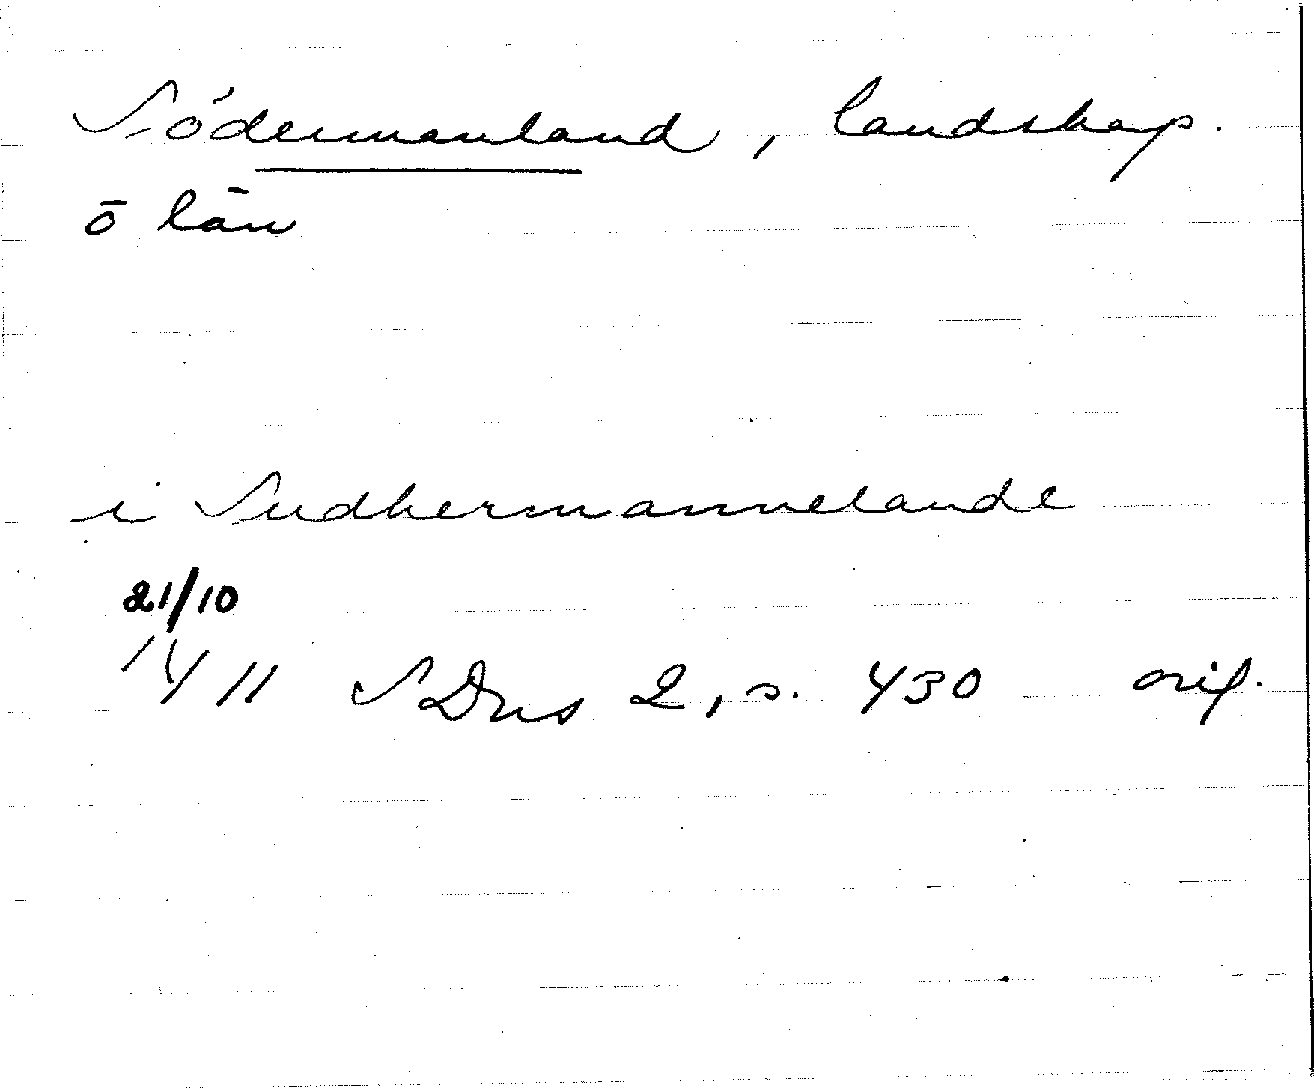 Södermanland, landskap.
o län
i Sudhermannelande
21/10
1411 SDns 2, s. 430 orig.